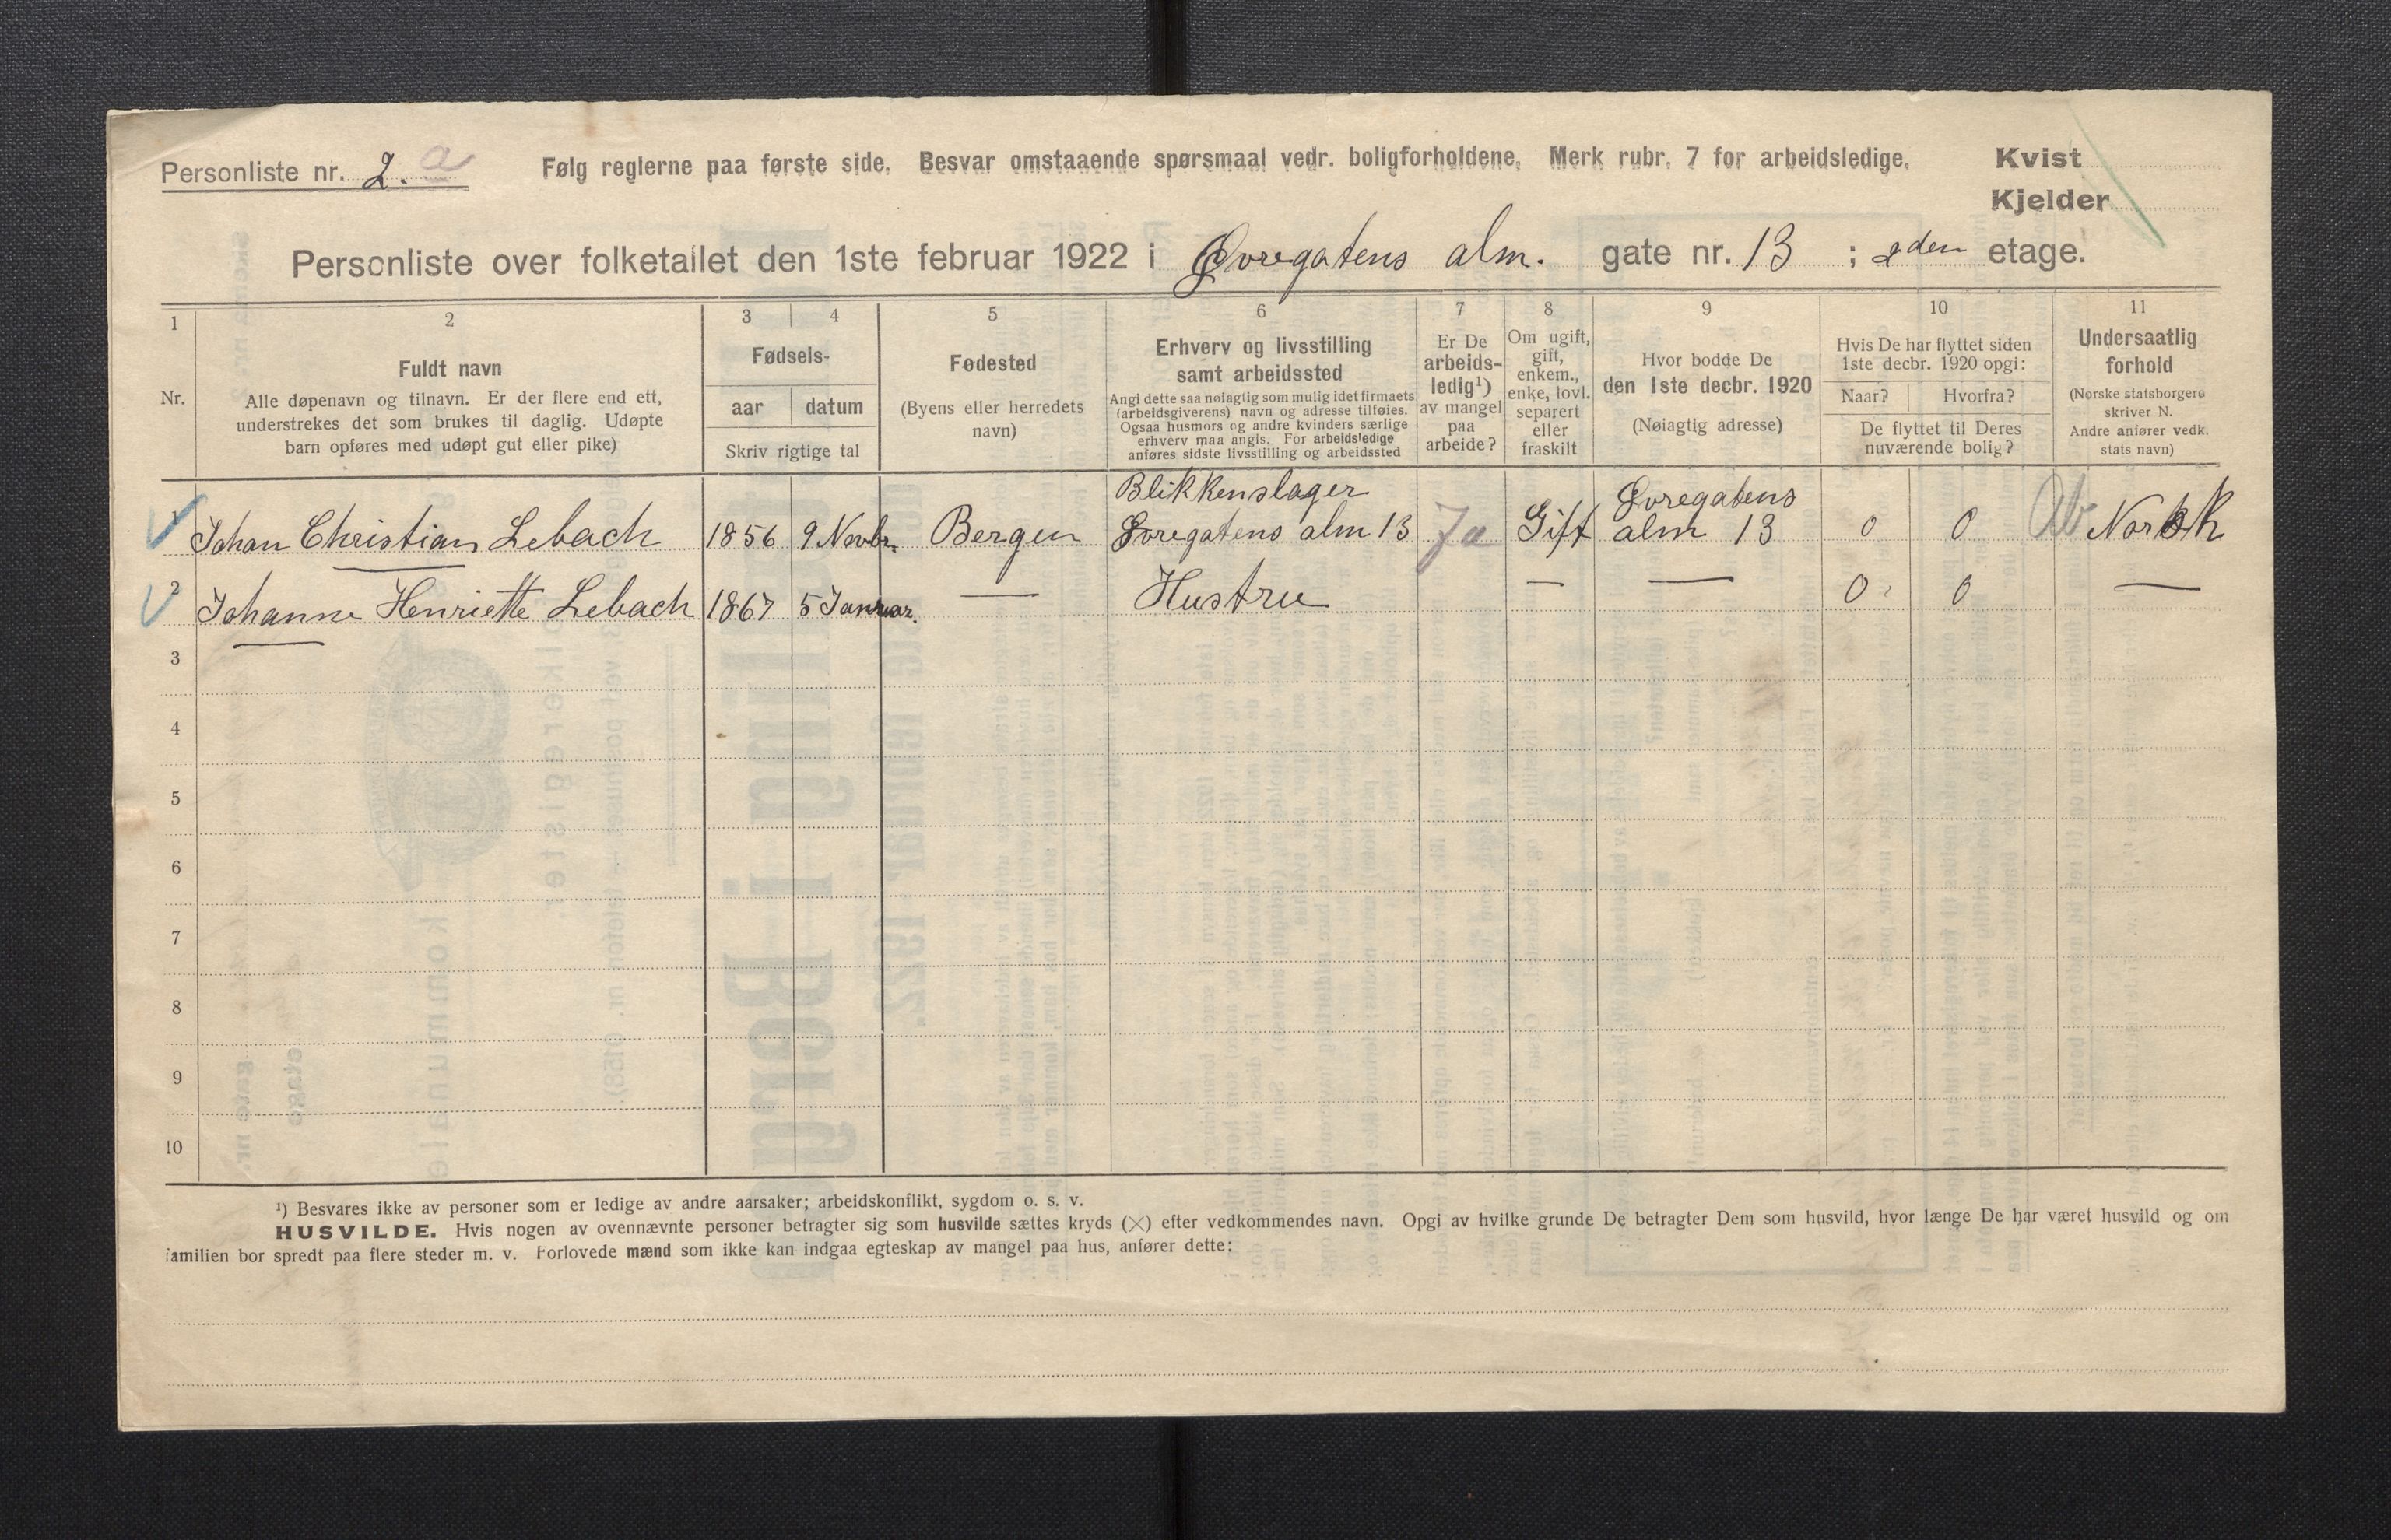 Personliste nr. 2. a
Følg reglerne paa første side. Besvar omstaaende spørsmaal vedr. boligforholdene. Merk rubr. 7 for arbeidsledige.
Kvist
Kjelder
Personliste over folketallet den 1ste februar 1922 i Øvregatens alm. gate nr. 13 ; 2den etage.
1 2 3 4 5 6 7 8 9 10 11
Nr.
Fuldt navn
Alle døpenavn og tilnavn. Er der flere end ett,
understrekes det som brukes til daglig. Udøpte
barn opføres med udøpt gut eller pike)
Fødsels-
aar datum
Skriv rigtige tal
Fødested
(Byens eller herredets
navn)
Erhverv og livsstilling
samt arbeidssted
Angi dette saa nøiaglig som mulig idet firmaets
(arbeidsgiverens) navn og adresse tilføies.
Ogsaa husmors og andre kvinders særlige
erhverv maa angis. For arbeidsledige
anføres sidste livsstilling og arbeidssted
Er De
arbeids-
ledig¹)
av mangel
paa
arbeide?
Om ugift,
gift,
enkem.,
enke, lovl.
separert
eller
fraskilt
Hvor bodde De
den 1ste decbr. 1920
(Nøiagtig adresse)
Hvis De har flyttet siden
1ste decbr. 1920 opgi:
Naar? Hvorfra?
De flyttet til Deres
nuværende bolig?
Undersaatlig
forhold
(Norske statsborgere
skriver N.
Andre anfører vedk.
stats navn)
Blikkenslager Øvregatens
1 Johan Christian Lebach 1856 9 Novbr. Bergen Øvregatens alm 13 Ja Gift alm 13 0 0 Norsk
2 Johanne Henriette Lebach 1867 5 Januar. — Hustru — — 0 0 —
3
4
5
6
7
8
9
10
¹) Besvares ikke av personer som er ledige av andre aarsaker; arbeidskonflikt, sygdom o. s. v.
HUSVILDE. Hvis nogen av ovennævnte personer betragter sig som husvilde sættes kryds (×) efter vedkommendes navn. Opgi av hvilke grunde De betragter Dem som husvild, hvor længe De har været husvild og om
familien bor spredt paa flere steder m. v. Forlovede mænd som ikke kan indgaa egteskap av mangel paa hus, anfører dette: